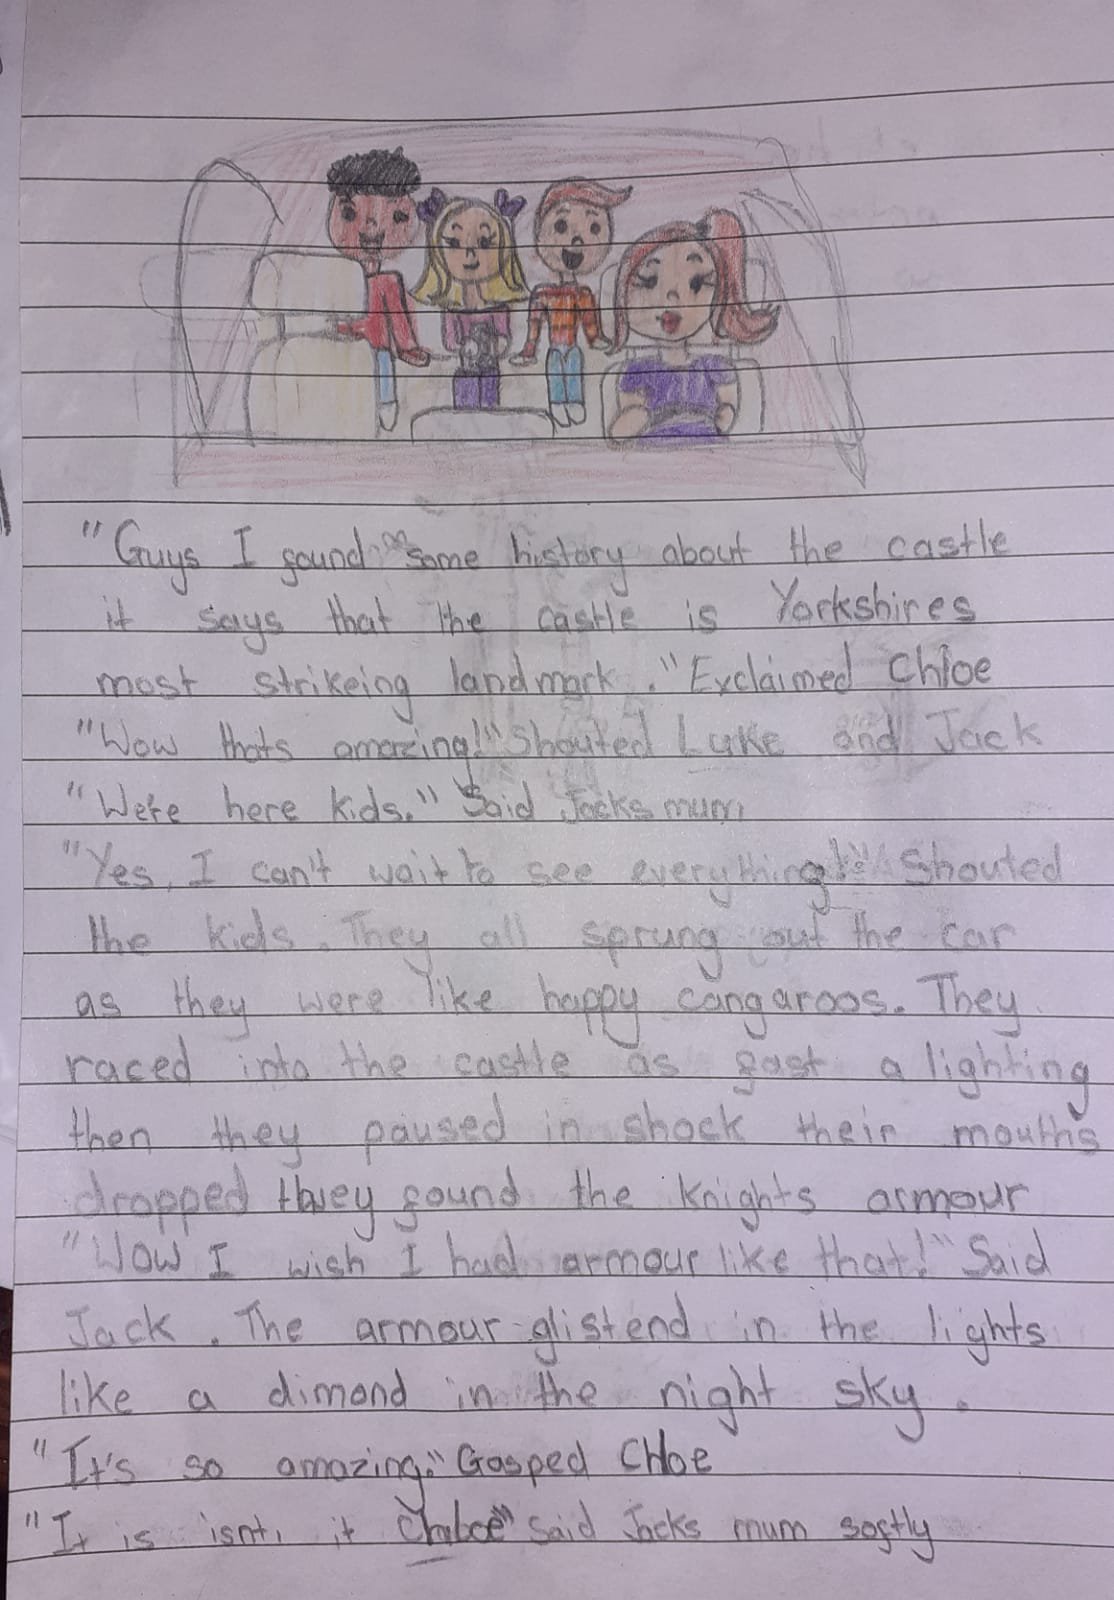 "Guys I found some history about the castle
it says that the castle is Yorkshires
most strikeing landmark." Exclaimed Chloe
"Wow thats amazing!" Shouted Luke and Jack
"We're here kids." Said Jacks mum
"Yes, I can't wait to see everything!" Shouted
the kids. They all sprung out the car
as they were like happy cangaroos. They
raced into the castle as fast a lighting
then they paused in shock their mouths
dropped they found the knights armour
"Wow I wish I had armour like that!" Said
Jack. The armour glistend in the lights
like a dimond in the night sky.
"It's so amazing." Gasped Chloe
"It is isnt, it" said Jacks mum softly